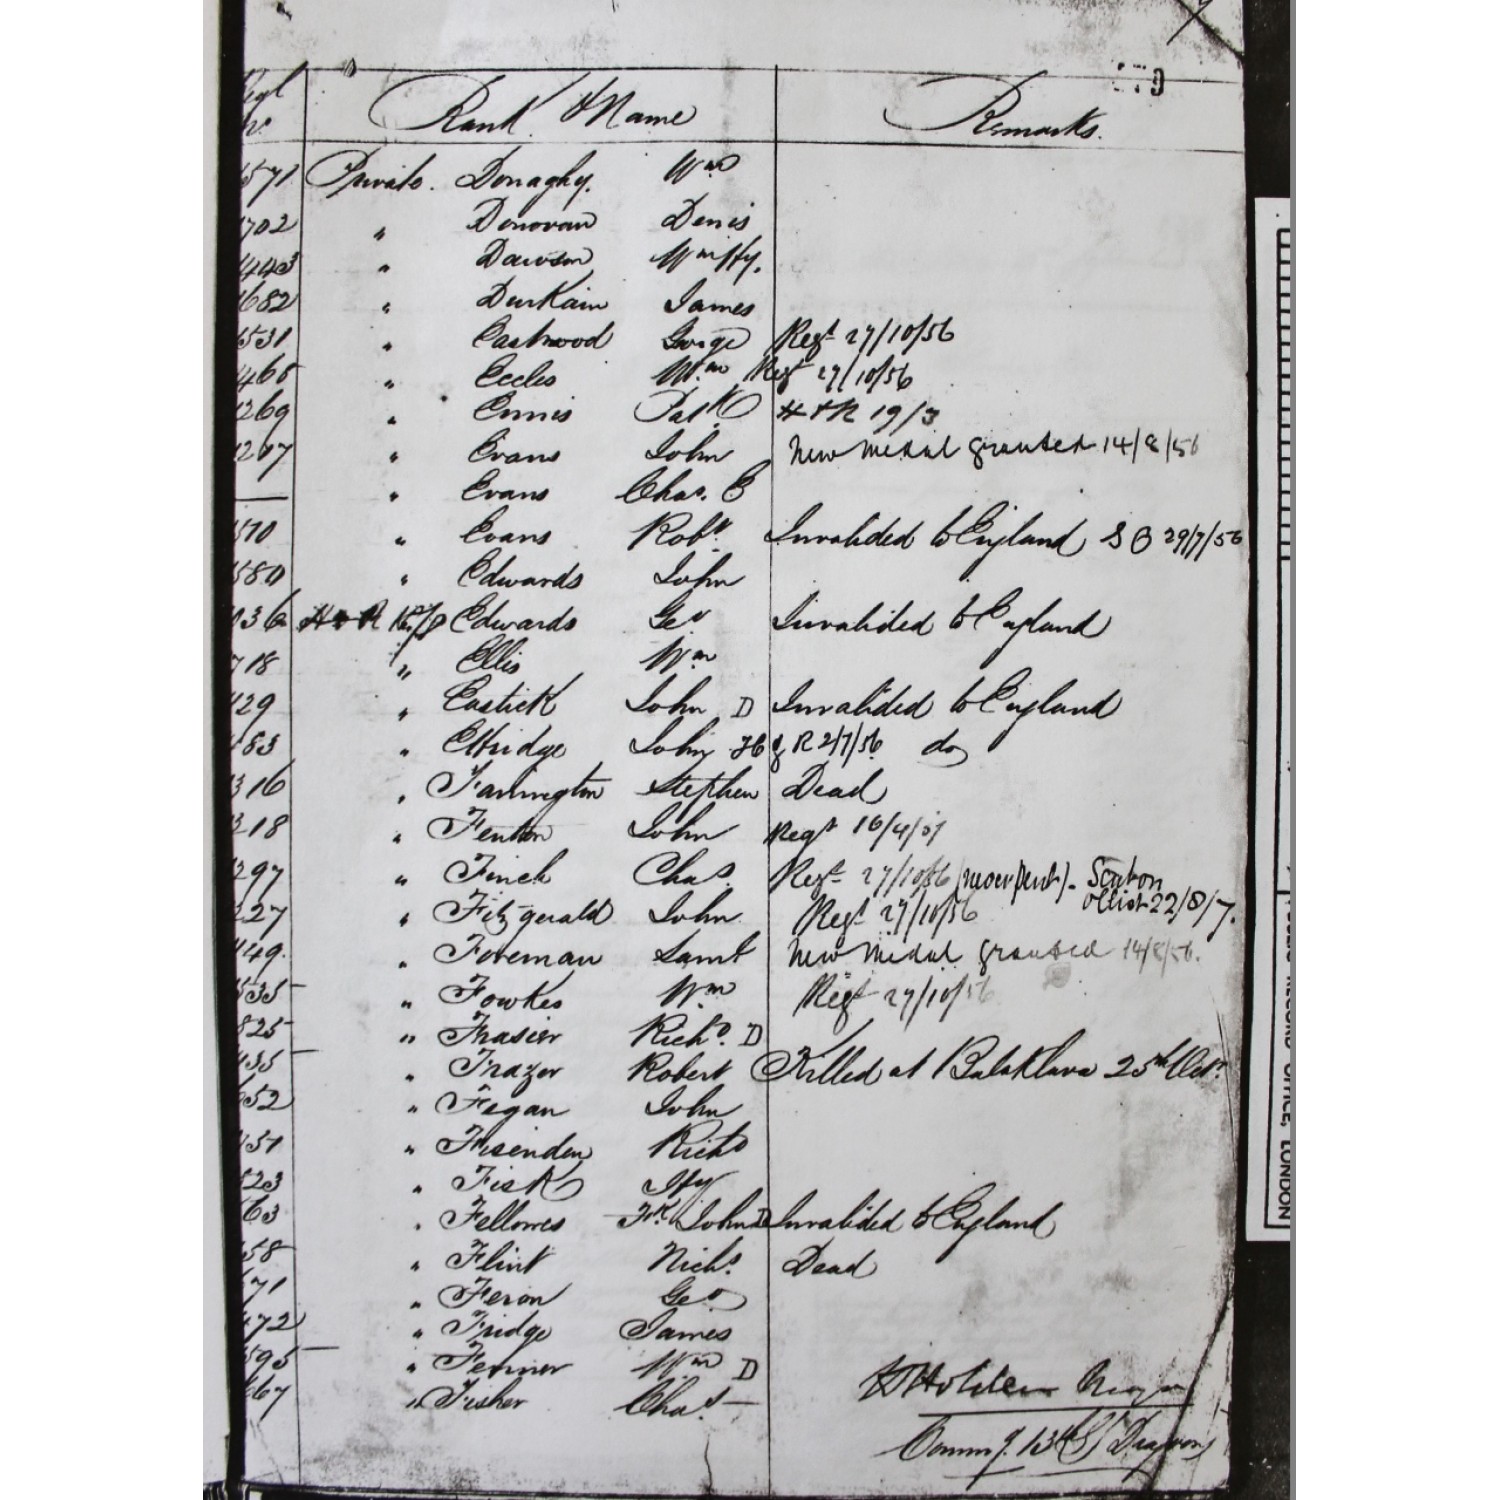 Regl
No.
Rank & Name Remarks.
571 Private. Donaghy. Wm
702 " Donovan Denis
443 " Dawson Wm Hy.
682 " Durkain James
531 " Eastwood George Regt 27/10/56
468 " Eccles Wm Regt 27/10/56
269 " Ennis Patk H & R 19/3
267 " Evans John New Medal granted 14/8/56
" Evans Chas. E
570 " Evans Robt. Invalided to England S O 29/7/56
580 " Edwards John
036 H & R Edwards Geo Invalided to England
718 " Ellis Wm
429 " Eastick John D Invalided to England
483 " Ettridge John H & R 2/7/56 do
316 " Farrington Stephen Dead
318 " Fenton John Regt 16/4/57
297 " Finch Chas. Regt 27/10/56
22/8/7.
227 " Fitzgerald John Regt 27/10/56
449. " Foreman Saml New Medal granted 14/8/56.
535 " Fowkes Wm Regt 27/10/56
825 " Frasier Richd. D
435 " Frazer Robert Killed at Balaklava 25th Octr.
652 " Fegan John
431 " Richd
523 " Fisk Hy
63 " Fellowes Fk John D Invalided to England
58 " Flint Nichs. Dead
71 " Feron Geo
472 " Fridge James
595 " Fenner Wm D
467 " Fisher Chas.
Holden Major
Commg. 13th Lt Dragoons
RECORD OFFICE, LONDON